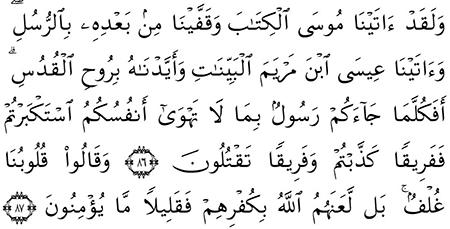 وَلَقَدْ ءَاتَيْنَا مُوسَى ٱلْكِتَـٰبَ وَقَفَّيْنَا مِنۢ بَعْدِهِۦ بِٱلرُّسُلِ ۖ
وَءَاتَيْنَا عِيسَى ٱبْنَ مَرْيَمَ ٱلْبَيِّنَـٰتِ وَأَيَّدْنَـٰهُ بِرُوحِ ٱلْقُدُسِ ۗ
أَفَكُلَّمَا جَآءَكُمْ رَسُولٌۢ بِمَا لَا تَهْوَىٰٓ أَنفُسُكُمُ ٱسْتَكْبَرْتُمْ
فَفَرِيقًا كَذَّبْتُمْ وَفَرِيقًا تَقْتُلُونَ ﴿٨٦﴾ وَقَالُوا۟ قُلُوبُنَا
غُلْفٌۢ ۚ بَل لَّعَنَهُمُ ٱللَّهُ بِكُفْرِهِمْ فَقَلِيلًا مَّا يُؤْمِنُونَ ﴿٨٧﴾